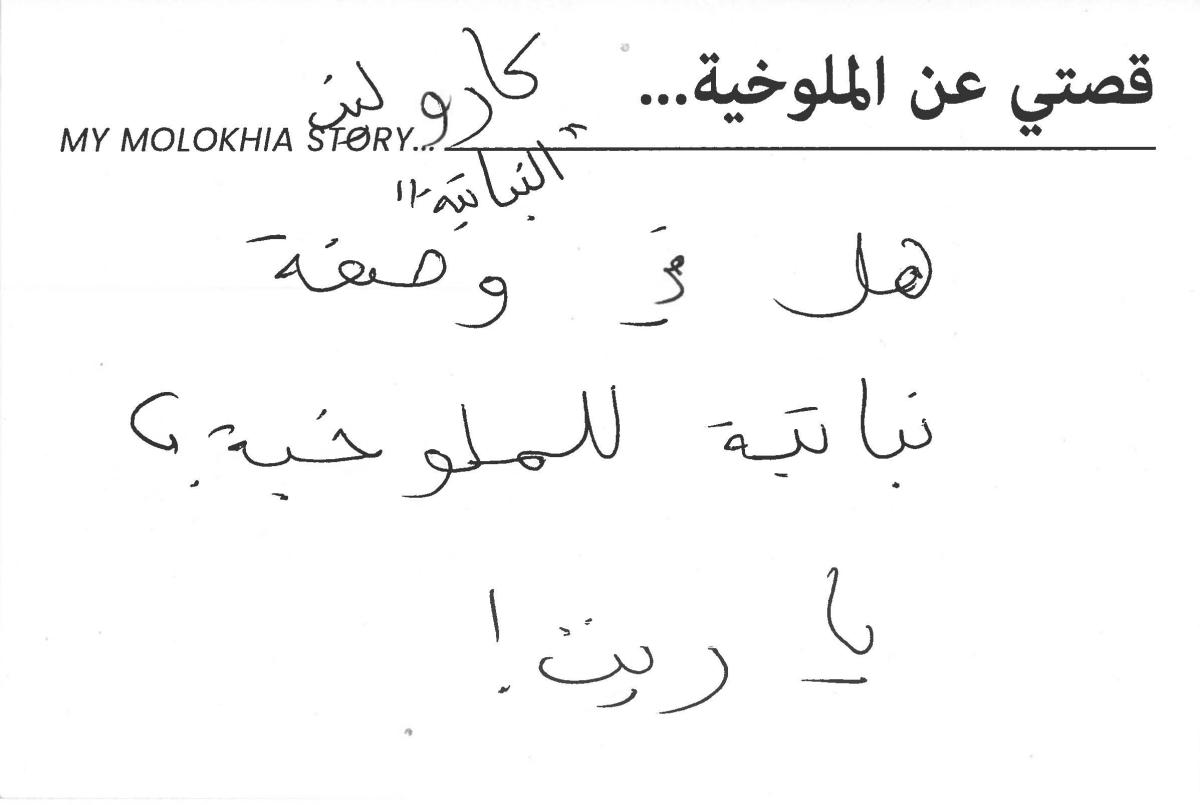 قصتي عن الملوخية...
كارولين
MY MOLOKHIA STORY...
"النباتية"
هل في وصفة
نباتية للملوخية؟
يا ريت!